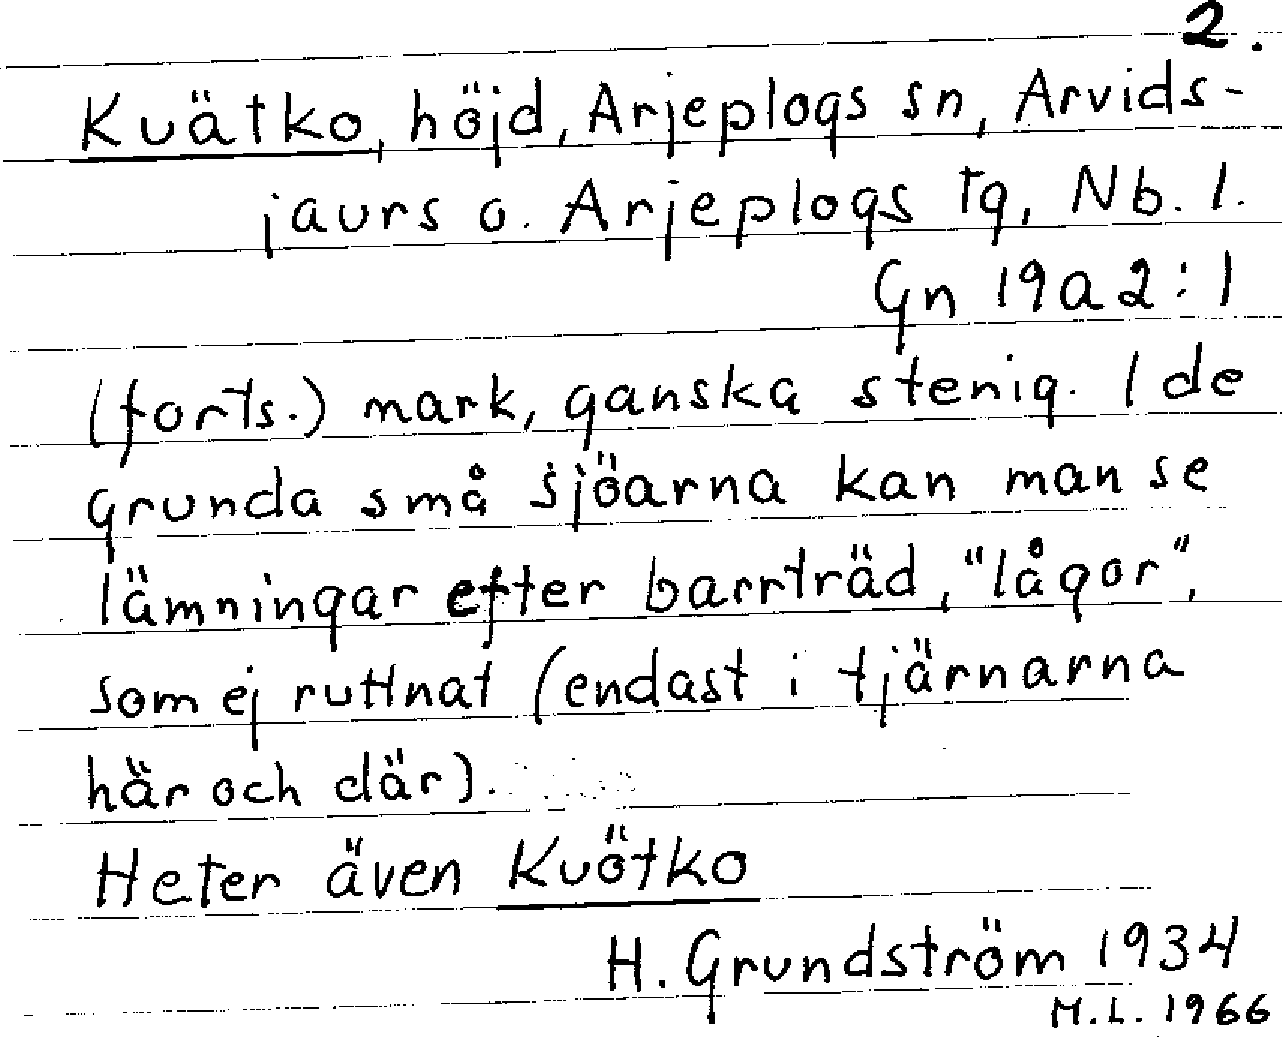 2.
Kuätko, höjd, Arjeplogs sn, Arvids-
jaurs o. Arjeplogs tg, Nb. l.
Gn 19a2:1
(forts.) mark, ganska stenig. I de
grunda små sjöarna kan man se
lämningar efter barrträd, "lågor",
som ej ruttnat (endast i tjärnarna
här och där).
Heter även Kuötko
H. Grundström 1934
M.L. 1966